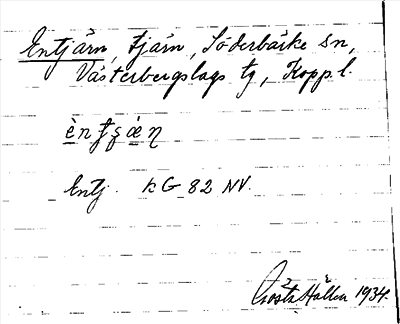 Entjärn, tjärn, Söderbärke sn,
Västerbergslags tg, Kopp.l.
Entj. KG 82 NV.
Gösta Hallen 1934.